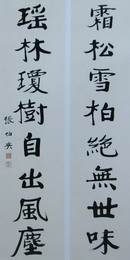 霜松雪柏絕無世味
瑤林瓊樹自出風塵
張伯英